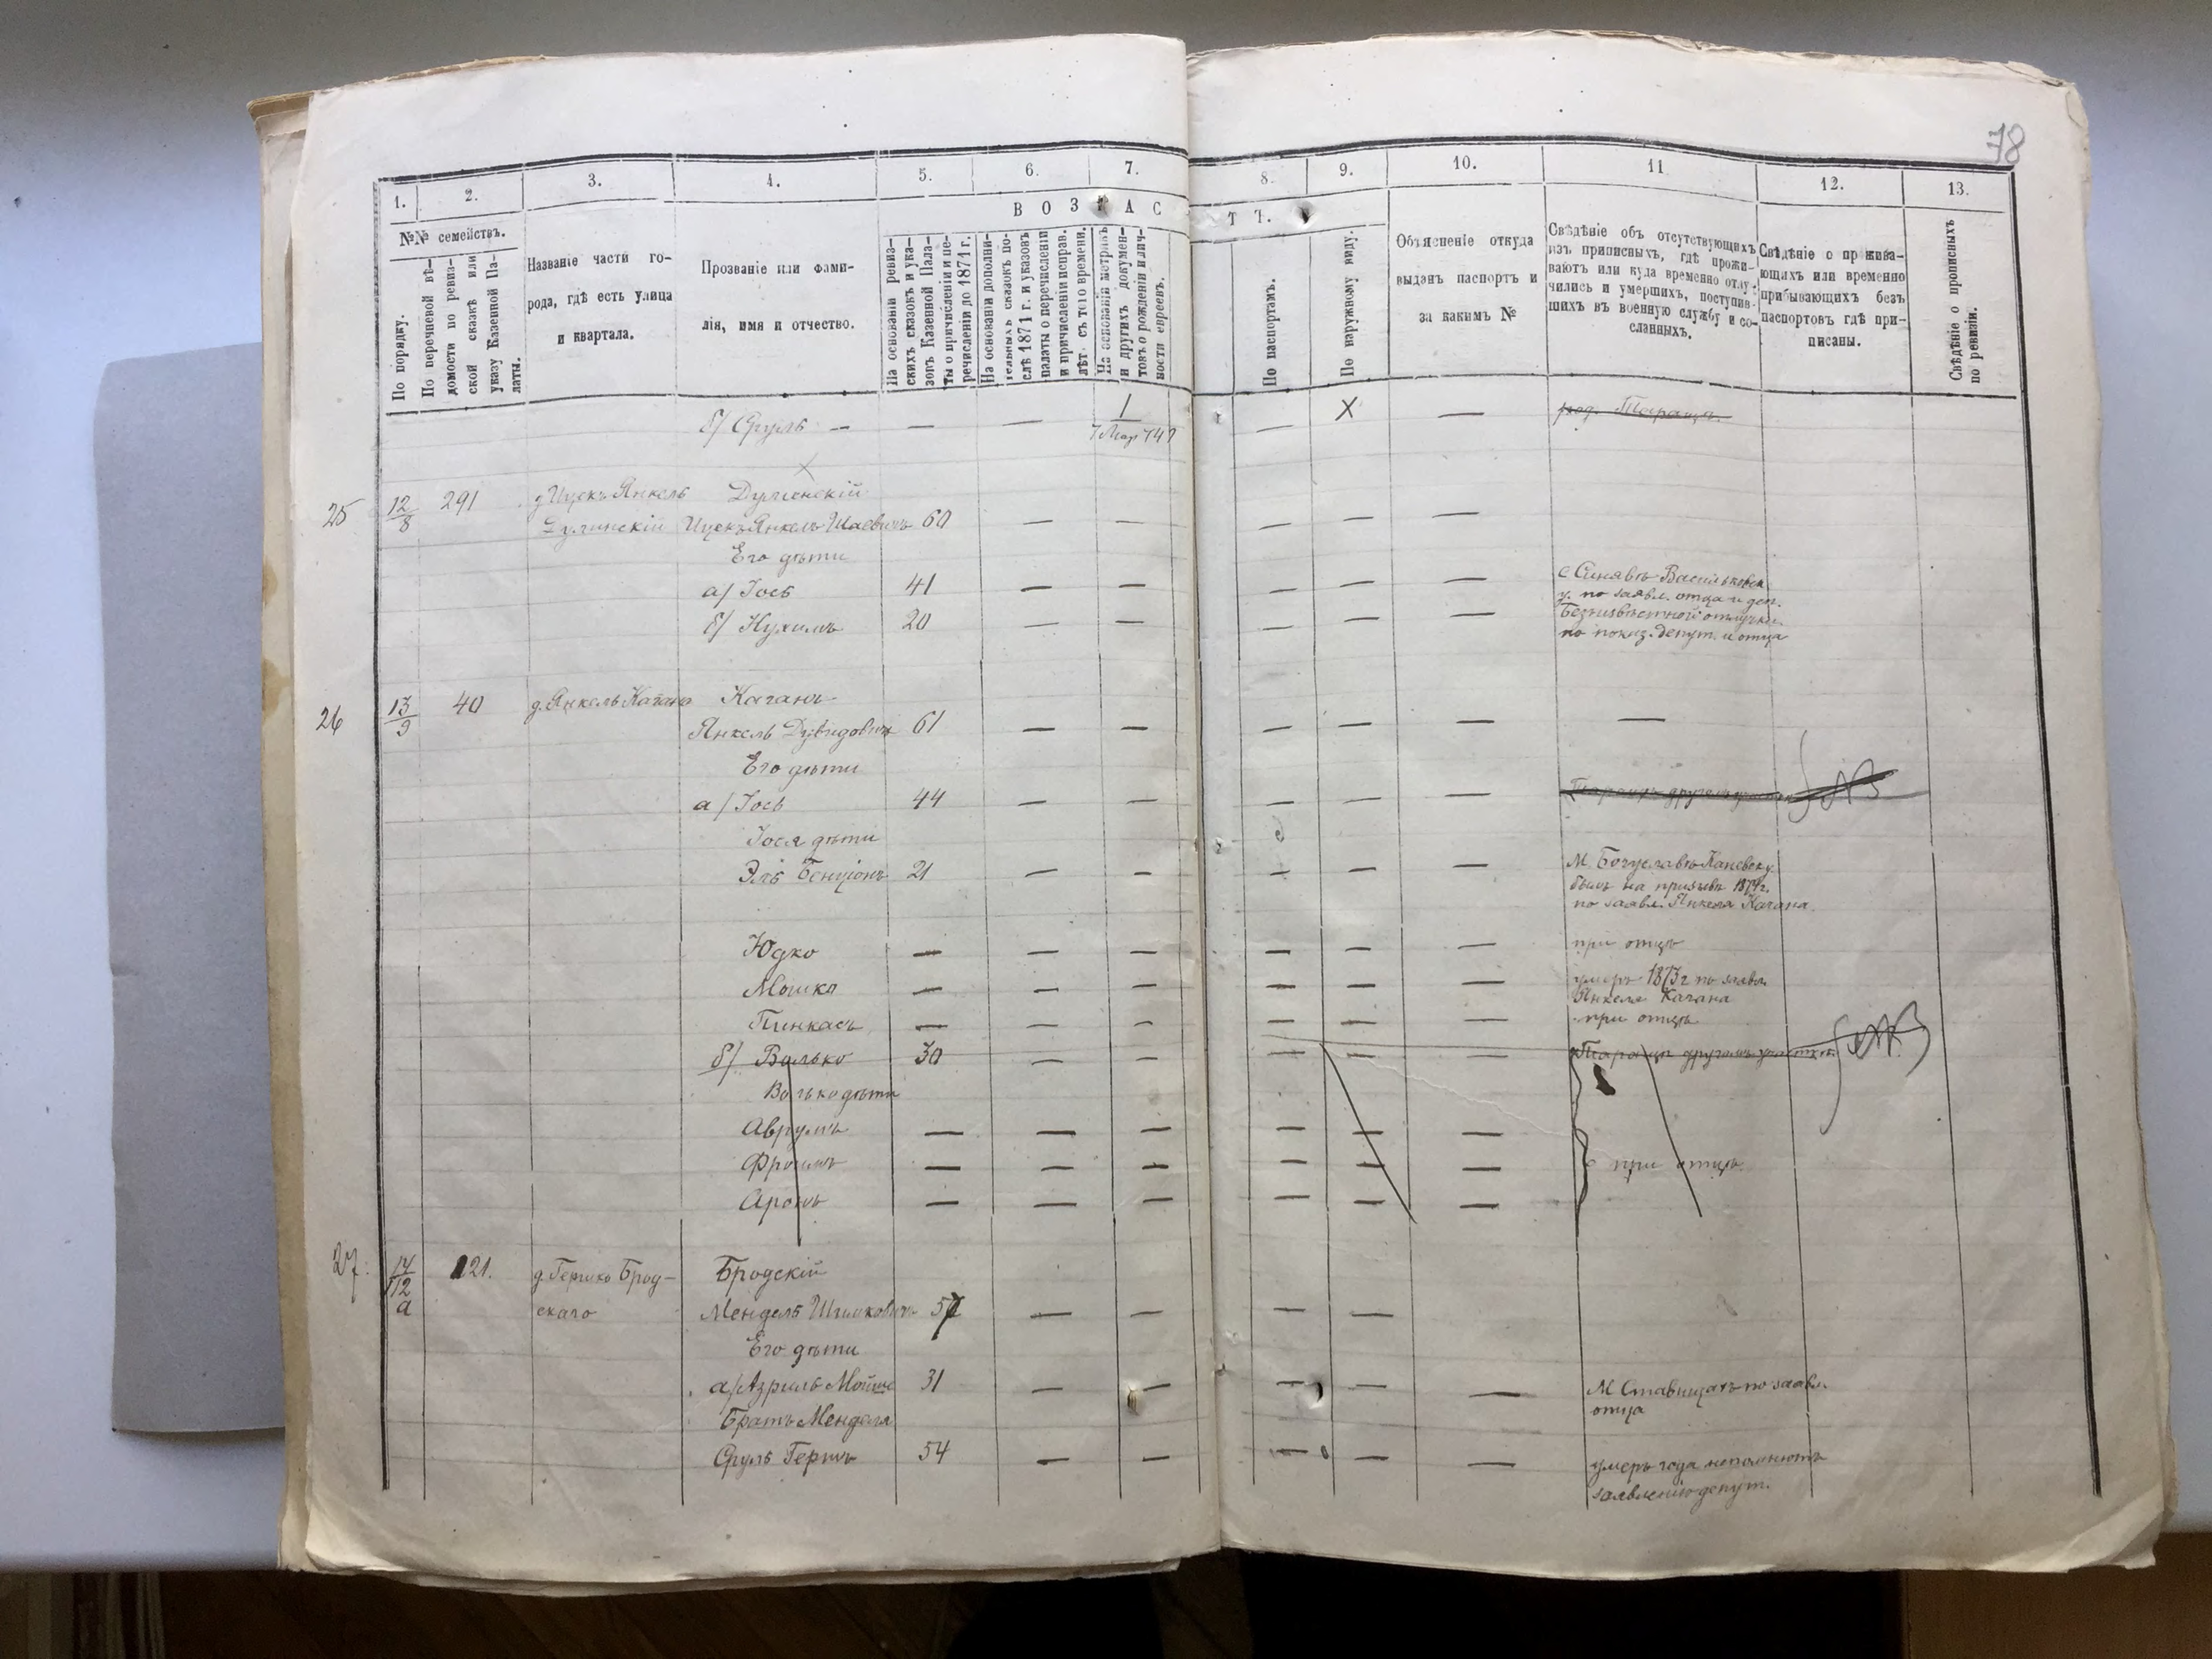 78
1. 2. 3. 4. 5. 6. 7. 8. 9. 10. 11 12. 13.
№№ семействъ.
По порядку.
По перечневой вѣ-
домости по ревиз-
ской сказкѣ или
указу Казенной Па-
латы.
Названіе части го-
рода, гдѣ есть улица
и квартала.
Прозваніе или фами-
лія, имя и отчество.
ВОЗРАСТЪ.
На основаніи ревиз-
скихъ сказокъ и ука-
зовъ Казенной Пала-
ты о причисленіи и пе-
речисленіи до 1871 г.
На основаніи дополни-
тельныхъ сказокъ по-
слѣ 1871 г. и указовъ
палаты о перечисленіи
и причисленіи исправ.
лѣт. съ того времени.
На основаніи метрикъ
и другихъ докумен-
товъ о рожденіи и лич-
ности евреевъ.
По паспортамъ.
По наружному виду.
Объясненіе откуда
выданъ паспортъ и
за какимъ №
Свѣдѣніе объ отсутствующихъ
изъ приписныхъ, гдѣ прожи-
ваютъ или куда временно отлу-
чились и умершихъ, поступив-
шихъ въ военную службу и со-
сланныхъ.
Свѣдѣніе о прожива-
ющихъ или временно
прибывающихъ безъ
паспортовъ гдѣ при-
писаны.
Свѣдѣніе о прописныхъ
по ревизіи.
б/ Сруль — — — 1 — X — род. Тараща.
7 Мар 74
25 12/8 291 д Ицекъ Янкель Дулинскій
Дулинскій Ицекъ Янкель Шаевичъ 60 — — — — —
Его дѣти
а/ Іось 41 — — — — — с Синявѣ Васильковск.
у. по заявл. отца и деп.
б/ Нухимъ 20 — — — — — Безъизвѣстной отлучки
по показ. депут. и отца
26 13/9 40 д. Янкель Каганъ Каганъ
Янкель Дувидовичъ 61 — — — — — —
Его дѣти
а/ Іось 44 — — — — — Тараща другомъ участкѣ
Іося дѣти
Эль Бенціонъ 21 — — — — — М. Богуславѣ Каневск у.
былъ на призывѣ 1874г.
по заявл. Янкеля Кагана
Юдко — — — — — — при отцѣ
Мошко — — — — — — умеръ 1873 г по заявл.
Янкеля Кагана
Пинкасъ — — — — — — при отцѣ
б/ Волько 30 — — — — — Тараща другомъ участкѣ
Волько дѣти
Аврумъ — — — — — —
Фроимъ — — — — — — при отцѣ
Аронъ — — — — — —
27. 14/12 а 121. д. Гершко Брод- Бродскій
скаго Мендель Шимковичъ 57 — — — —
Его дѣти
а/ Азриль Мойше 31 — — — — — М Ставищахъ по заявл.
отца
Братъ Менделя
Сруль Гершъ 54 — — — — — умеръ года непомнютъ
заявленію депут.